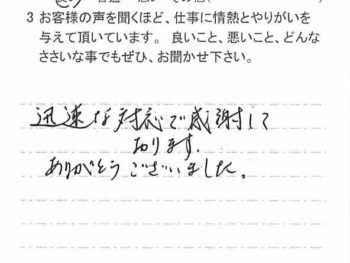 3 お客様の声を聞くほど、仕事に情熱とやりがいを
与えて頂いています。良いこと、悪いこと、どんな
ささいな事でもぜひ、お聞かせ下さい。
迅速な対応で感謝して
おります.
ありがとうございました。